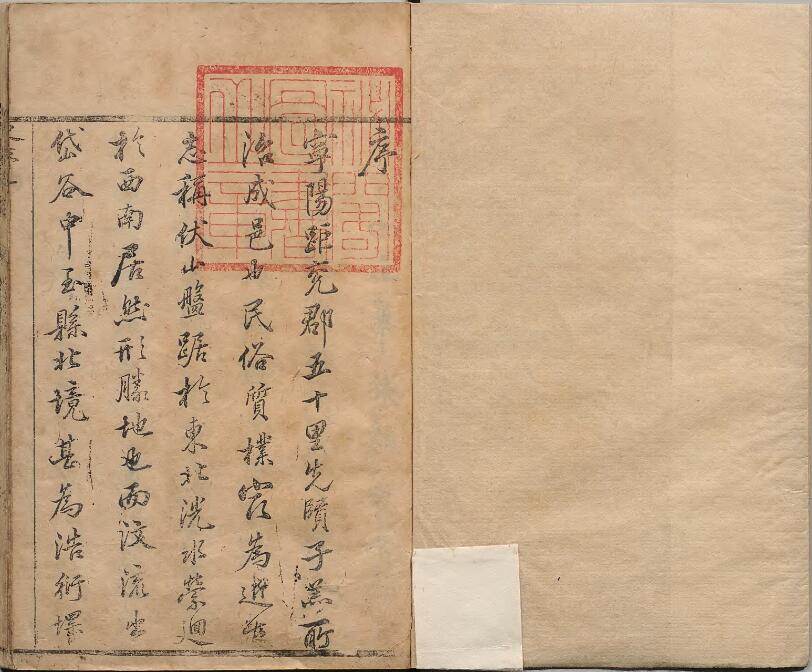 序
寧陽距兗郡五十里先賢子羔所
治成邑也民俗質樸
志稱伏山盤踞於東北洸水縈迴
於西南居然形勝地也而汶流出
岱谷中至縣北境甚為浩衍